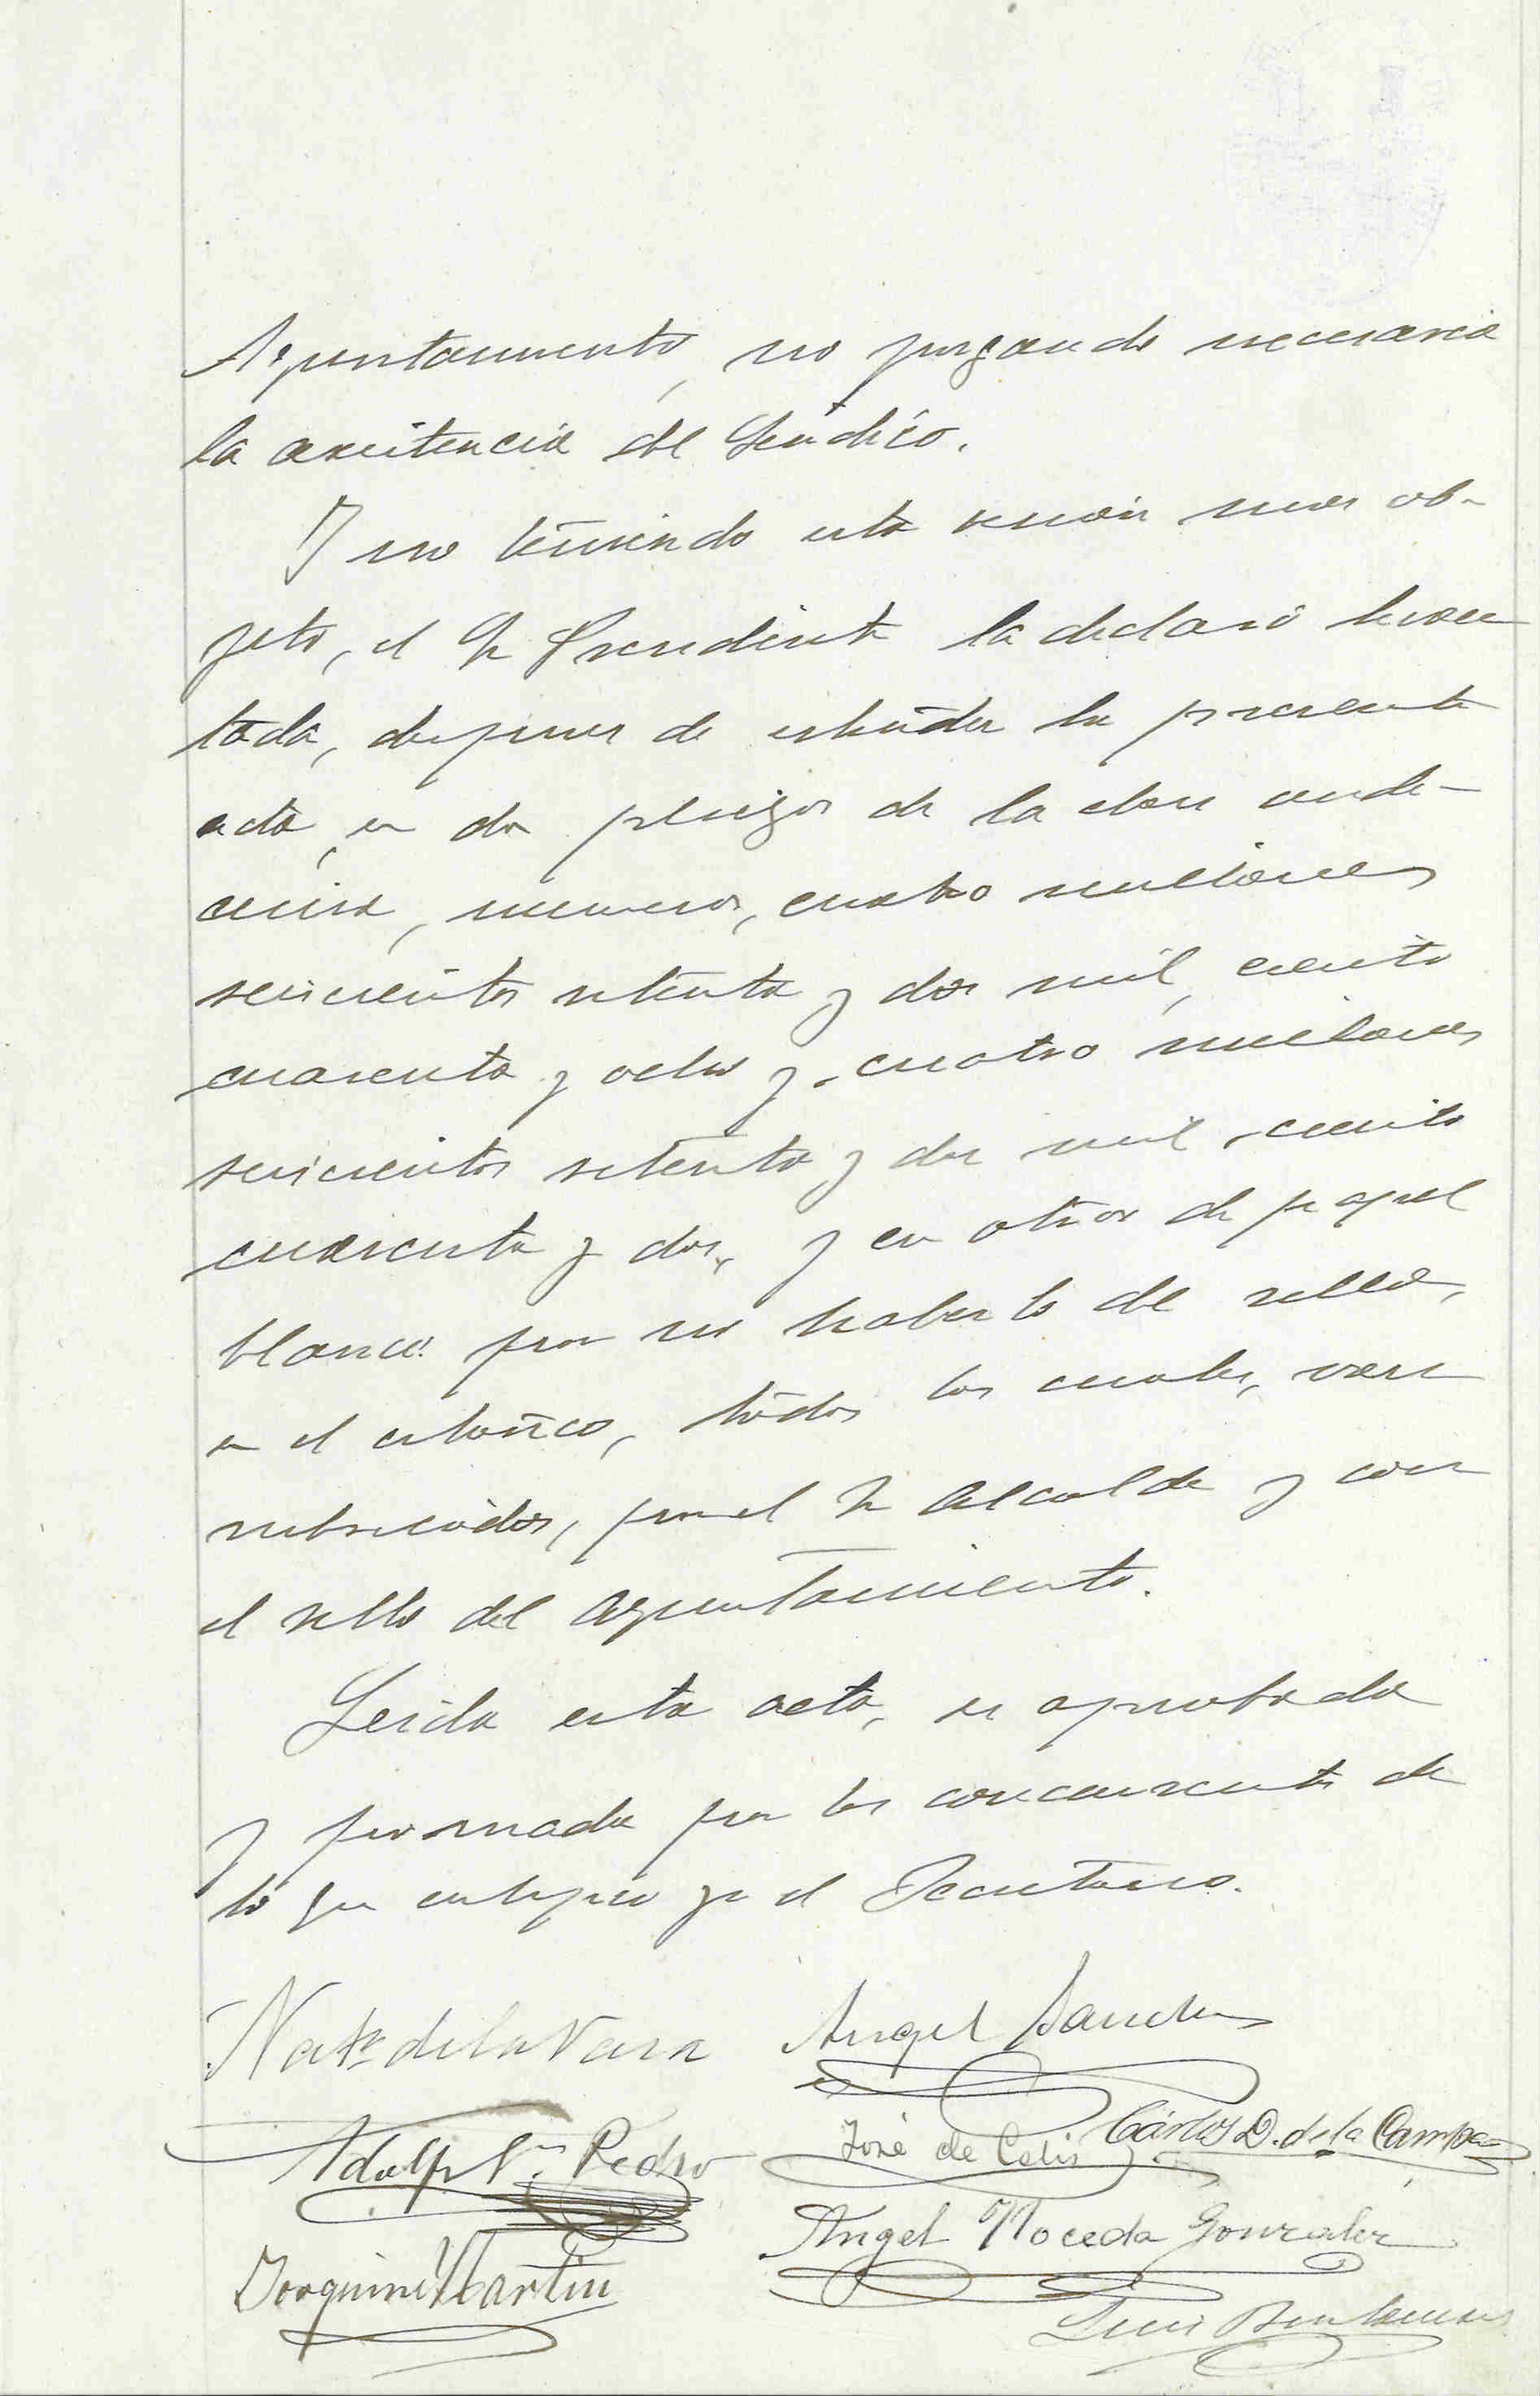 Ayuntamiento, no juzgando necesaria
la asistencia del Síndico.
Y no teniendo esta sesión mas ob-
jeto, el Sr Presidente la declaró levan
tada, despues de extender la presente
acta, en dos pliegos de la clase unde-
cima, numeros, cuatro millones
seiscientos setenta y dos mil, ciento
cuarenta y ocho y cuatro millones
seiscientos setenta y dos mil ciento
cuarenta y dos, y en otros de papel
blanco por no haberlo del sello,
en el estanco, todos los cuales, van
rubricados, por el Sr Alcalde y con
el sello del Ayuntamiento.
Leida esta acta, es aprobada
y firmada por los concurrentes de
lo que certifico yo el Secretario.
de la Vara Angel Sanchez
Adolfo Pedro José de Celis Cárlos D. de la Campa
Angel Noceda Gonzalez
Joaquin Martin
Luis